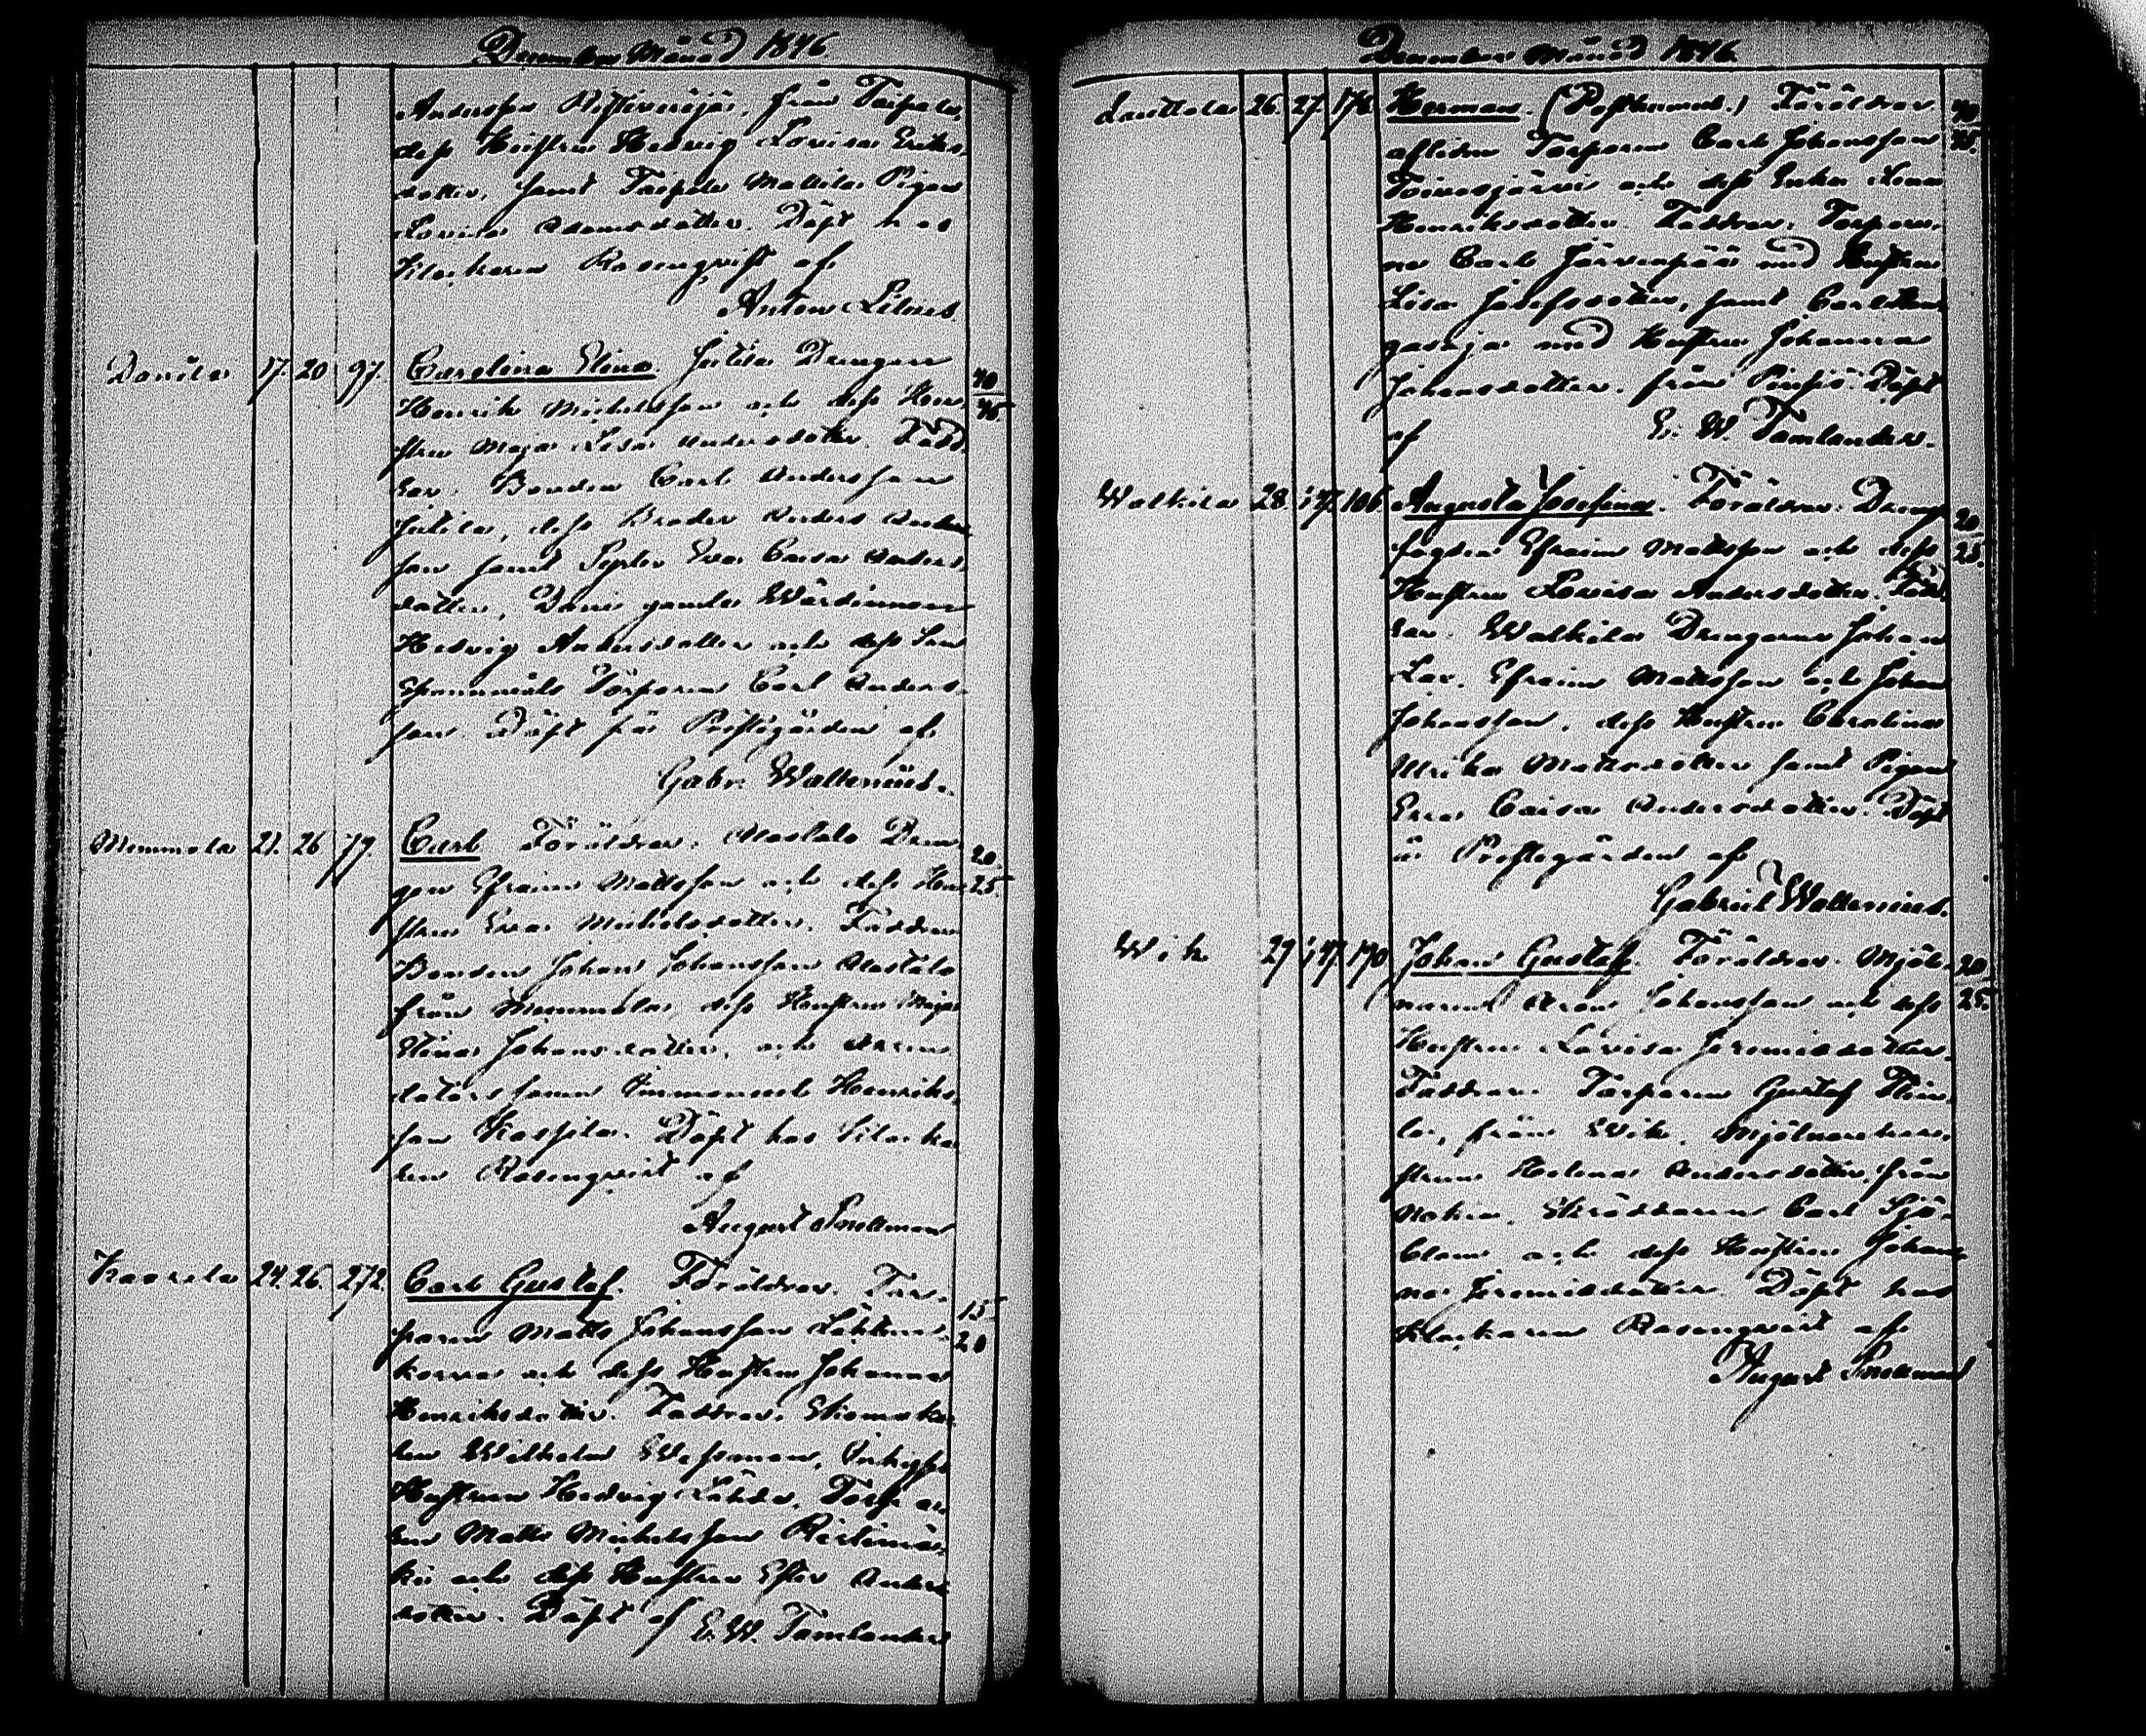 December Månad 1846.
Andersson från Taipale,
dess Hustru Hedvig Lovisa Eriks-
dotter, samt Taipale Mattila Pigan
Lovisa Adamsdotter. Döpt hos
Klockaren Rosenqvist af
Anton Lilius.
Danila 17. 20 97. Carolina Elina. Jutila Drengen 40
Henrik Michelsson och dess Hu- 45.
stru Maja Lisa Andersdotter. Fadd-
rar. Bonden Carl Andersson
Jutila, dess Broder Anders Anders-
son samt Syster Eva Caisa Anders-
dotter, gamla Wärdinnan
Hedvig Andersdotter och dess Son
Torparen Carl Anders-
son. Döpt på Prostgården af
Gabr. Wallenius.
Memmola 21. 26 79. Carl Föräldrar. Alastalo Dren- 20.
gen Efraim Mattsson och dess Hu- 25.
stru Eva Michelsdotter. Faddrar
Bonden Johan Johansson Alastalo
från Memmola, dess Hustru Maja
Stina Johansdotter, och Arren-
datorssonen Immanuel Henriks-
son Kaspila. Döpt hos Klocka-
ren Rosenqvist af
August Snellman
Kaarela 24. 26. 272. Carl Gustaf. Föräldrar. Tor- 15
paren Matts Johansson 20
och dess Hustru Johanna
Henriksdotter. Faddrar. Skomaka-
ren Wilhelm Inhyses
Hustrun Hedvig Torpa-
ren Matts Michelsson
och dess Hustru Ester Anders-
dotter. Döpt af E. W. Tamlander
December Månad 1846.
Lauttola 26. 27. 178. Herman. (Posthumus.) Föräldrar 40
aflidne Torparen Carl Johansson 45.
Toivosjärvi och dess Enka Lena
Henriksdotter. Faddrar. Torpare-
ne Carl Järvenpää med Hustru
Lisa Josefsdotter, samt Carl
med Hustru Johanna
Johansdotter. från Döpt
af E. W. Tamlander.
Walkila 28. 1/47. 106. Augusta Josefina. Föräldrar. Dreng- 20
fogden Efraim Mattsson och dess 25.
Hustru Lovisa Andersdotter. Fadd-
rar. Walkila Drengarne Johan
Efraim Mattsson och Johan
Johansson, dess Hustru Carolina
Ulrika Mattsdotter samt Pigan
Eva Caisa Andersdotter. Döpt
i Prostgården af
Gabriel Wallenius.
Wik 29 1/47. 170 Johan Gustaf. Föräldrar. Mjöl- 20
naren Aron Johansson och dess 25.
Hustru Lovisa Jeremiædotter.
Faddrar. Torparen Gustaf
från Wik. Mjölnarehu-
strun Helena Andersdotter, från
Nokia. Skräddaren Carl Sjö-
blom och dess Hustru Johan-
na Jeremiædotter. Döpt hos
Klockaren Rosenqvist af
August Snellman